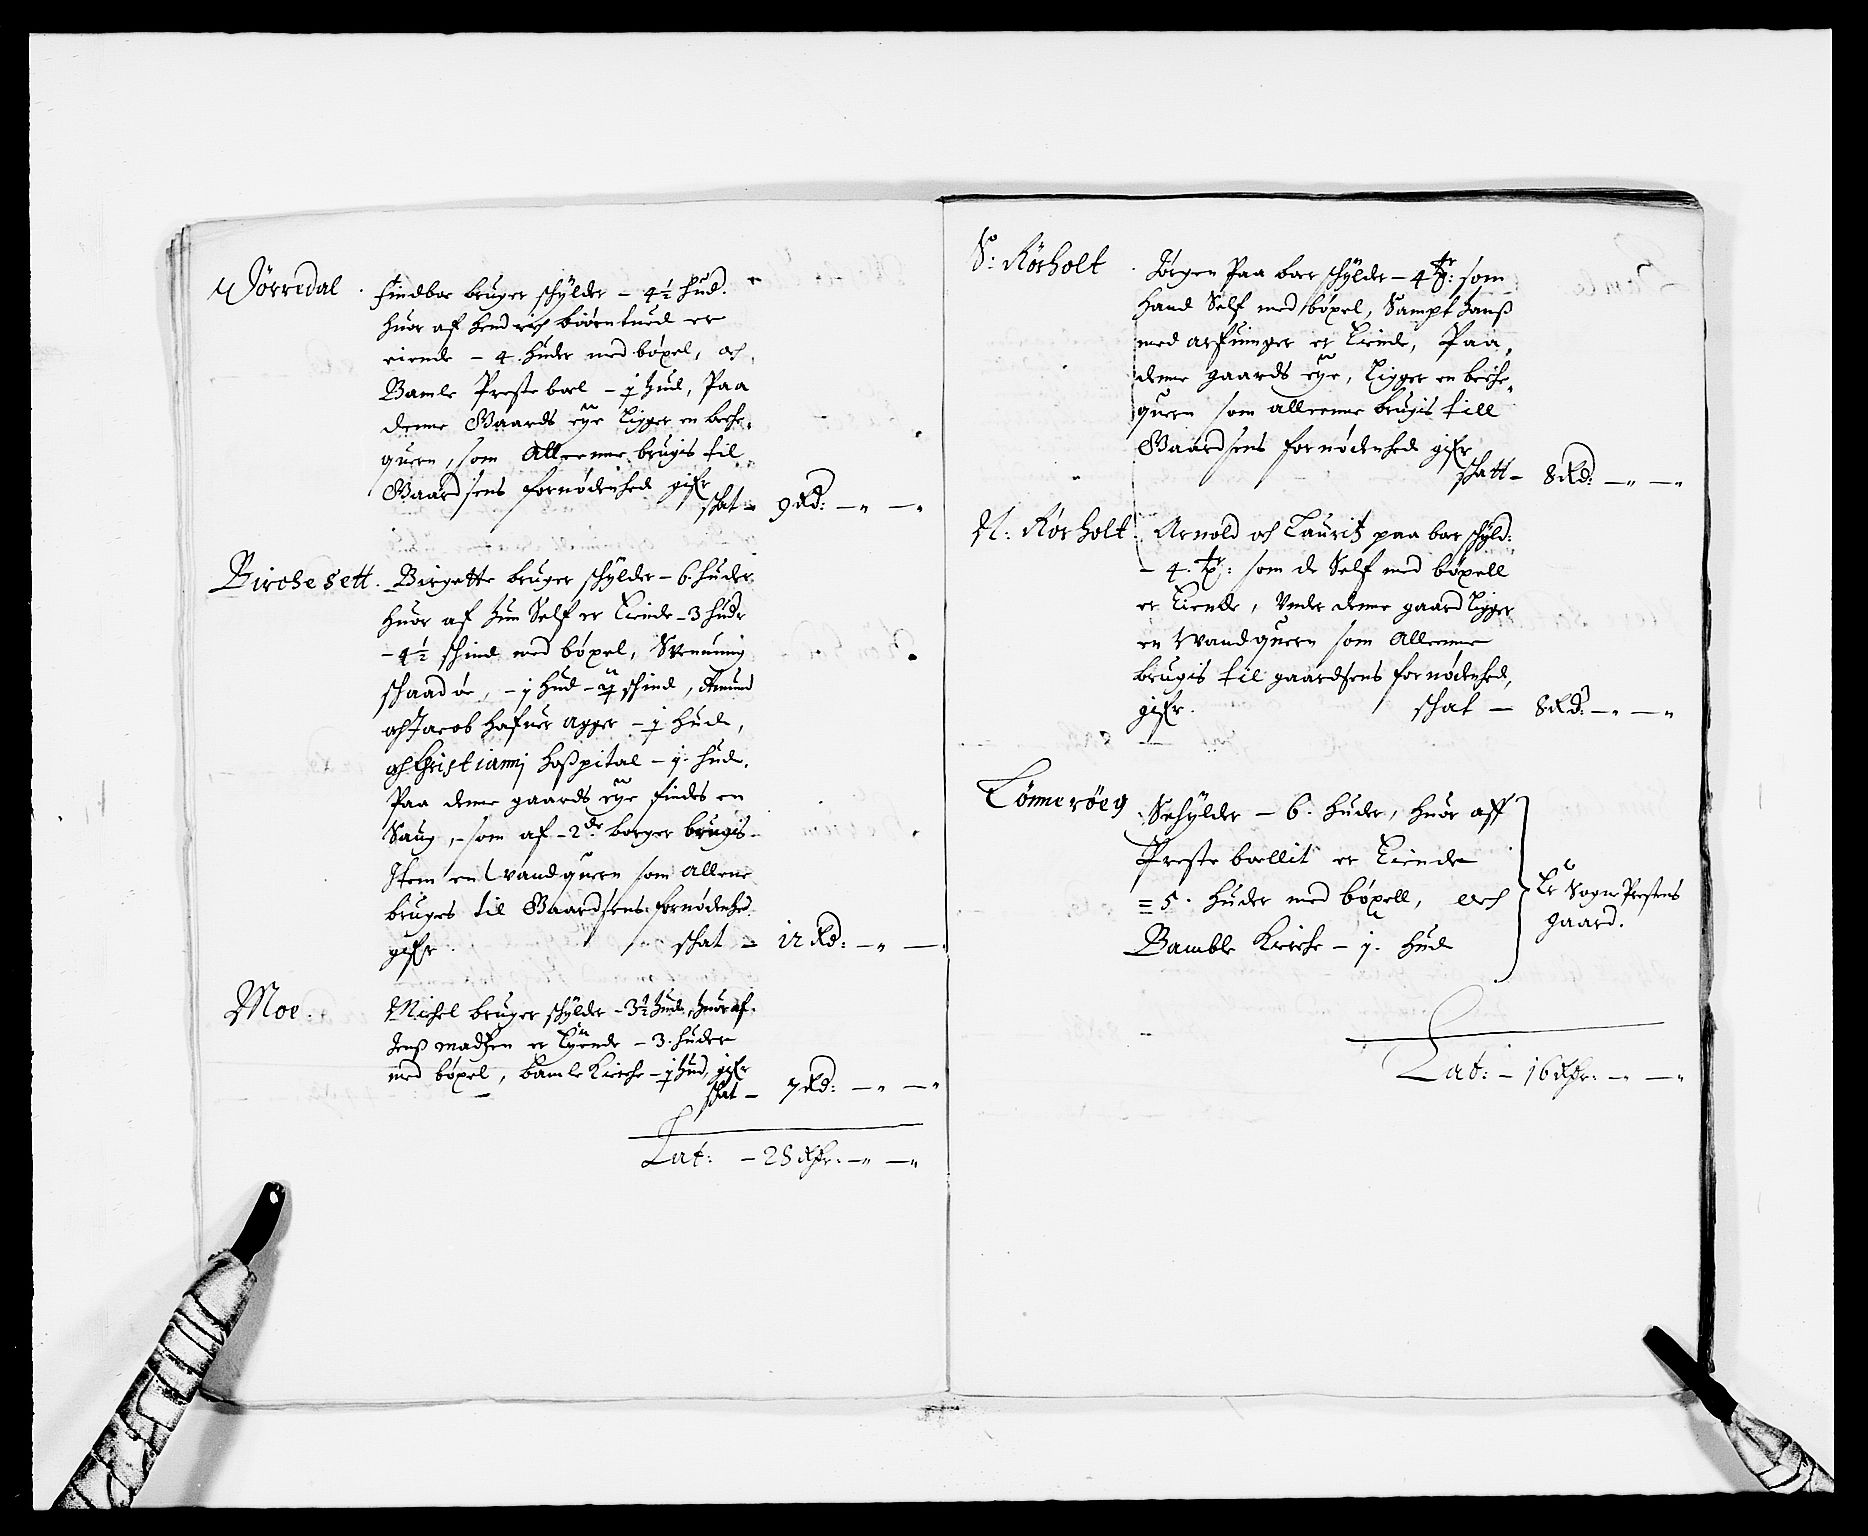 Wörredal. Findboe bruger schylder – 4½ hud.
huor af Hendrich Biörentued er
eiende – 4 huder med böxel, och
Bamle Presteboel – ½ hud, Paa
denne Gaards eye Ligger en beche„
quern, som Alleenne brugis til
Gaardsens fornödenhed gifr
schat – 9 Rd: – „ – „
Birchesett. Birgette bruger schylder – 6 huder
huor af hun Self er Eiende – 3 hudr
– 4½ schind med böxel, Svenning
schaadöe, – 1 hud – schind, Amund
och Jacob Hafuer Agger – ½ hude,
och Christianj Hoßpital – 1 hude.
Paa denne gaards eye findes en
Saug, – som af – 2de borger brugis
Item en Wandquern som Allene
bruges til Gaardsens fornödenhed
gifr. schat – 12 Rd: – „ –
Moe. Michel bruger schylder – 3½ hude, huor af
Jens Madsen er Eyende – 3 huder
med böxel, Bamle Kirche – ½ hud, gifr
schat – 7 Rd: – „ – „
Lat: – 28 Rdr: – „ – „
S: Rörholt. Jörgen Paa boer schylder – 4 tr: som
Hand Self med böxel, Sampt hans
med arfuinger er Eiende, Paa
denne gaards eye, Ligger en beche„
quern som alleenne brugis till
Gaardsens fornödenhed gifr
schatt – 8 Rd: – „ – „
N: Rörholt. Arnold och Lauritz paa boer schyld:
– 4 tr: som de Self med böxell
er Eiende, Under denne gaard ligger
en Wandquern som Alleenne
brugis til gaardsens fornödenhed,
gifr. schat – 8 Rd: – „ – „
Lönneröeg Schylder – 6 huder, huor aff
Preste boellit er Eiende
= 5. huder med böxell, och
Bamble Kirche – 1. hud
Er Sogne Prestens
gaard.
Lat: – 16 Rdr: – „ – „